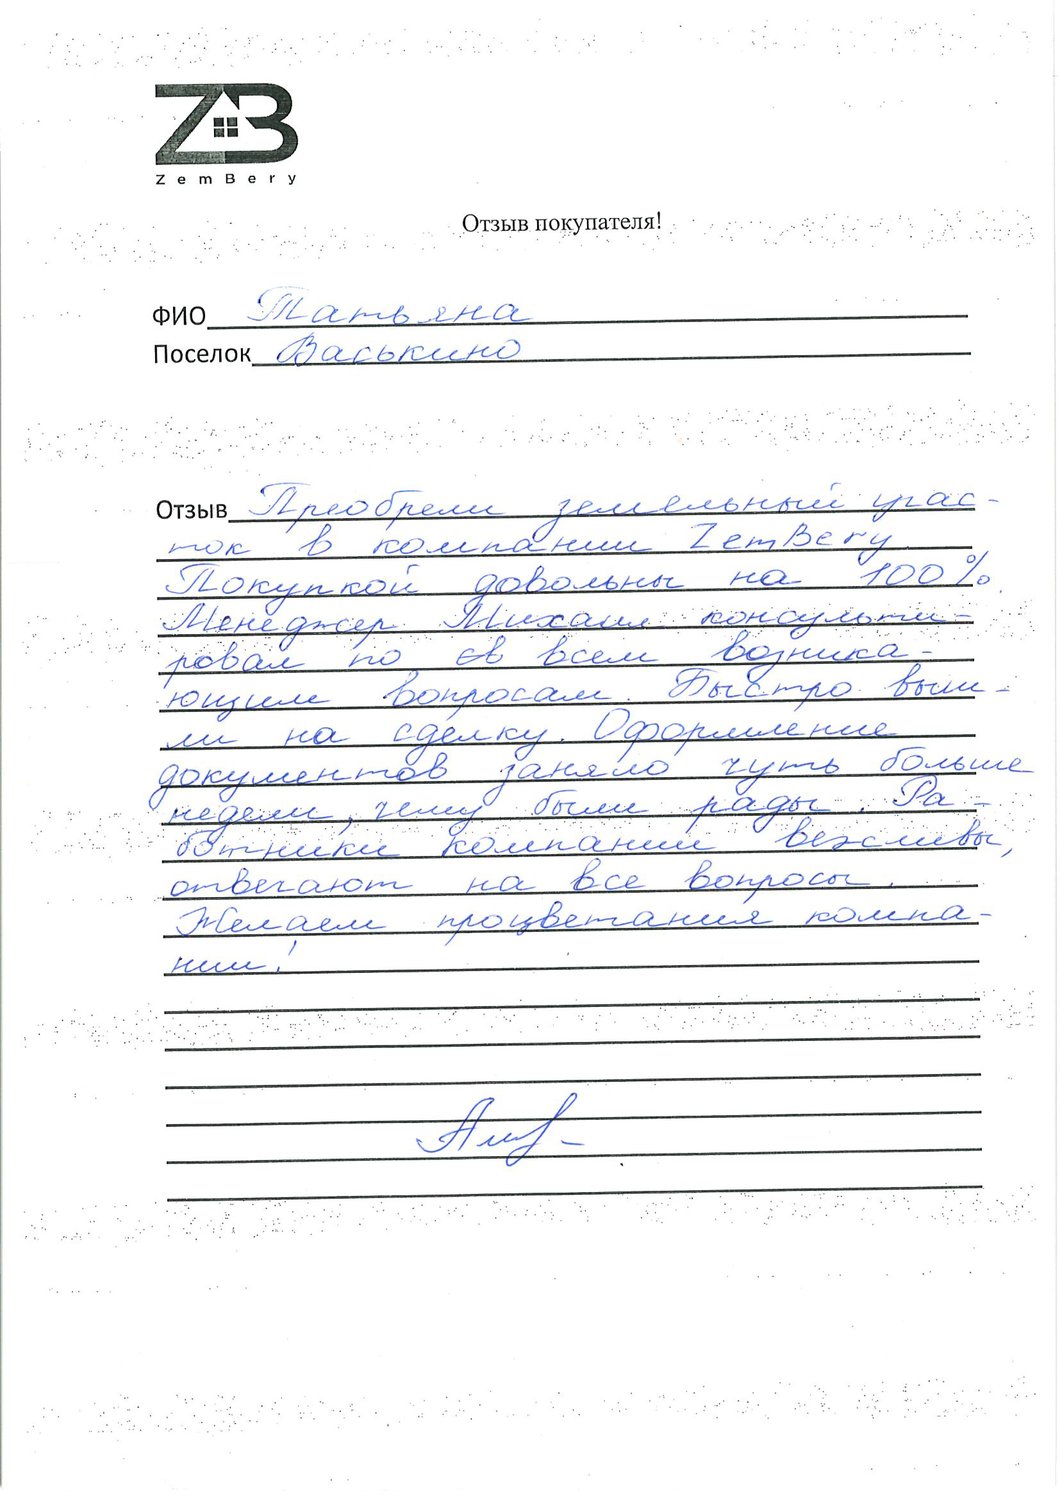 ZB
ZemBery
Отзыв покупателя!
ФИО Татьяна
Поселок Васькино
Отзыв Преобрели земельный учас-
ток в компании ZemBery
Покупкой довольны на 100%
Менеджер Михаил консульти-
ровал по всем возника-
ющим вопросам. Быстро выш-
ли на сделку. Оформление
документов заняло чуть больше
недели, чему были рады. Ра-
ботники компании вежливы,
отвечают на все вопросы.
Желаем процветания компа-
нии!